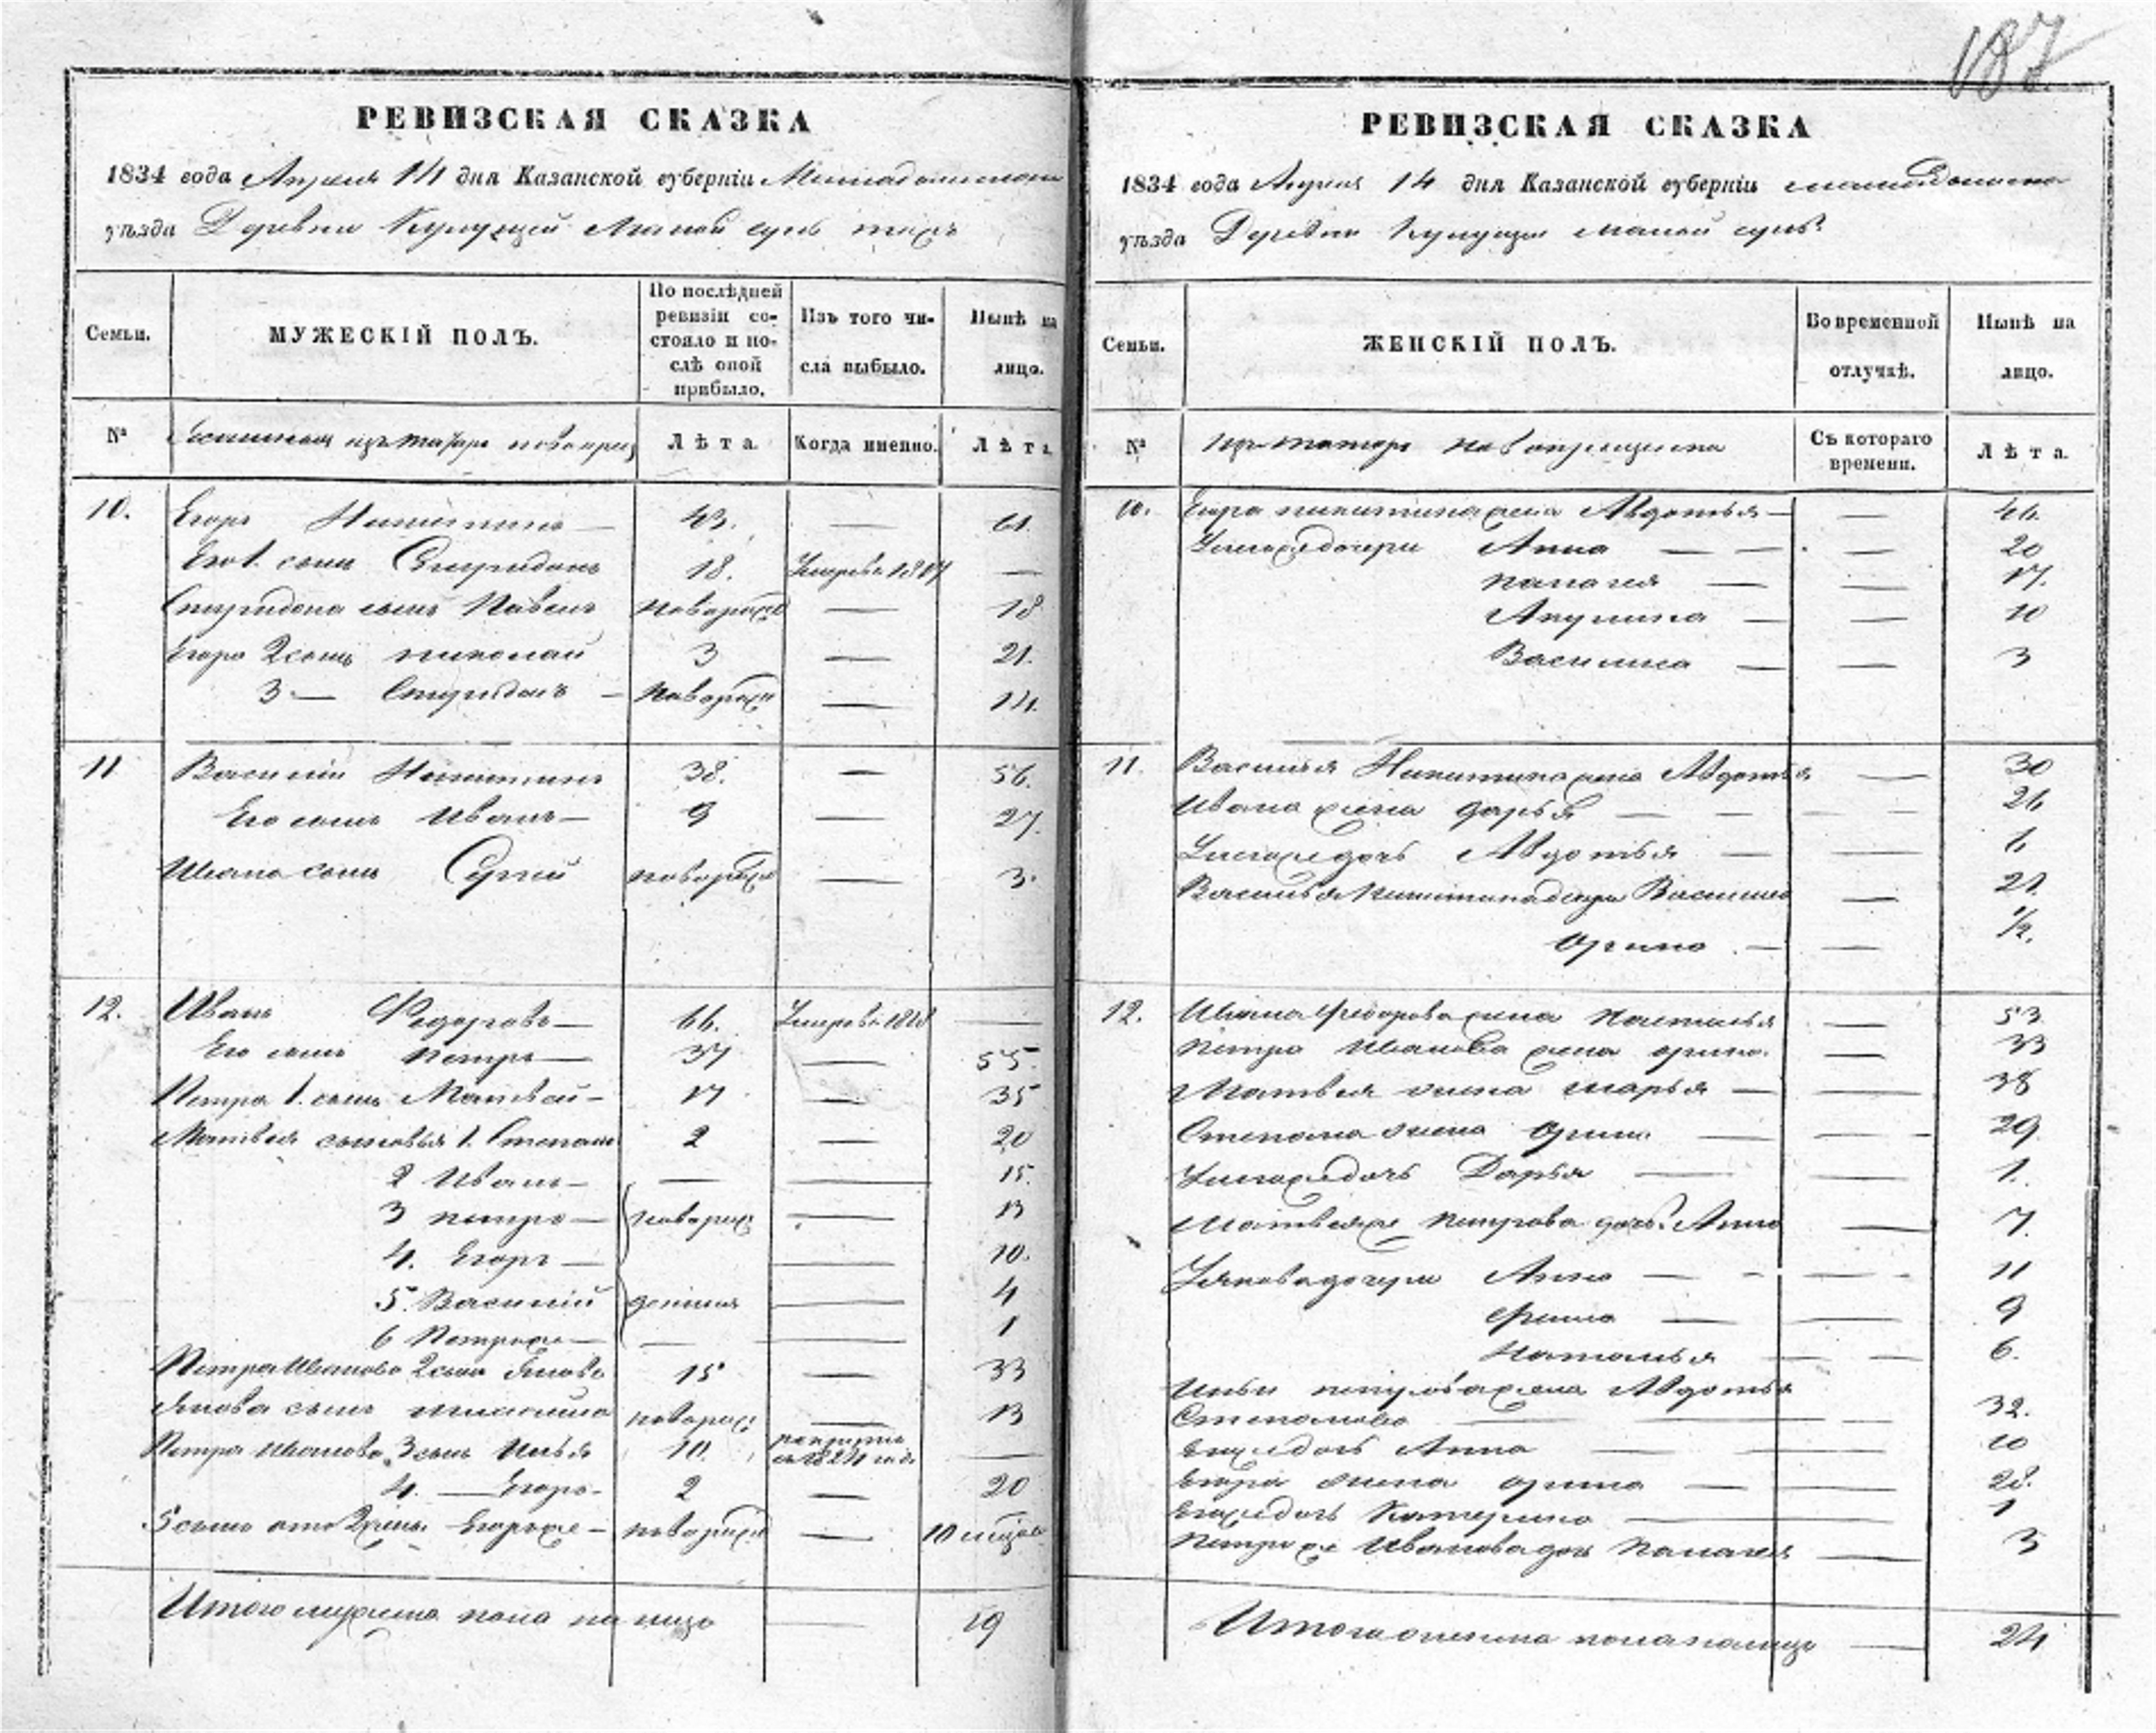 187.
РЕВИЗСКАЯ СКАЗКА
1834 года Апреля 14 дня Казанской губерніи
уѣзда Деревни Малой
Семьи. МУЖЕСКІЙ ПОЛЪ. По послѣдней ревизіи состояло и послѣ оной прибыло. Изъ того числа выбыло. Нынѣ на лицо.
№ изъ татаръ новокрещ Лѣта. Когда именно. Лѣта.
10. Егоръ Никитинъ — 43. — 61.
Его 1. сынъ Спиридонъ 18. Умеръ въ 1817 —
Спиридона сынъ Павелъ новорож — 18
Егора 2 сынъ николай 3 — 21.
3 — Спиридонъ — новорож — 14.
11 Василій Никитинъ 38. — 56.
Его сынъ Иванъ — 9 — 27.
Ивана сынъ Сергій новорож — 3.
12. Иванъ Федоровъ — 66. Умеръ въ —
Его сынъ петръ — 37 — 55.
Петра 1. сынъ Матвей — 17 — 35
Матвея сыновья 1. Степанъ 2 — 20
2 Иванъ — — — 15.
3 петръ — новорож — 13
4. Егоръ — — 10.
5. Василій денныя — 4
6 Петръ же — — — 1
Петра Иванова 2 сынъ Яковъ 15 — 33
Якова сынъ новорож — 13
Петра Иванова 3 сынъ Илья 10. —
4. — Егоръ — 2 — 20
5 сынъ отъ 2 жены Егоръ же — новорож — 10
Итого мужеска пола на лицо — 19
РЕВИЗСКАЯ СКАЗКА
1834 года Апреля 14 дня Казанской губерніи
уѣзда Деревни малой
Семьи. ЖЕНСКІЙ ПОЛЪ. Во временной отлучкѣ. Нынѣ на лицо.
№ Изъ татаръ Съ котораго времени. Лѣта.
10. Егора никитина жена Авдотья — — 46.
У него же дочери Анна — — — 20
палагея — — 17.
Акулина — — 10
Василиса — — 3
11. Василья Никитина жена Авдотья — 30
Ивана жена дарья — — — — 26
У него же дочь Авдотья — — 6
Василья Никитина дочери Василиса — 21.
Орина — — 1/2.
12. Ивана Федорова жена Настасья — 53
Петра Иванова жена орина. — 33
Матвея жена марья — — 38
Степана жена Орина — — — 29.
У него же дочь Дарья — — 1.
Матвея же петрова дочь Анна — 7.
Якова дочери Анна — — — — 11
Орина — — 9
Наталья — — — 6.
Ильи петрова жена Авдотья
Степанова — — — 32.
Его же дочь Анна — — 10
Егора жена орина — — 28.
Его же дочь Катерина — 1
Петра же Иванова дочь Палагея — 3
Итого женска пола налицо — 24